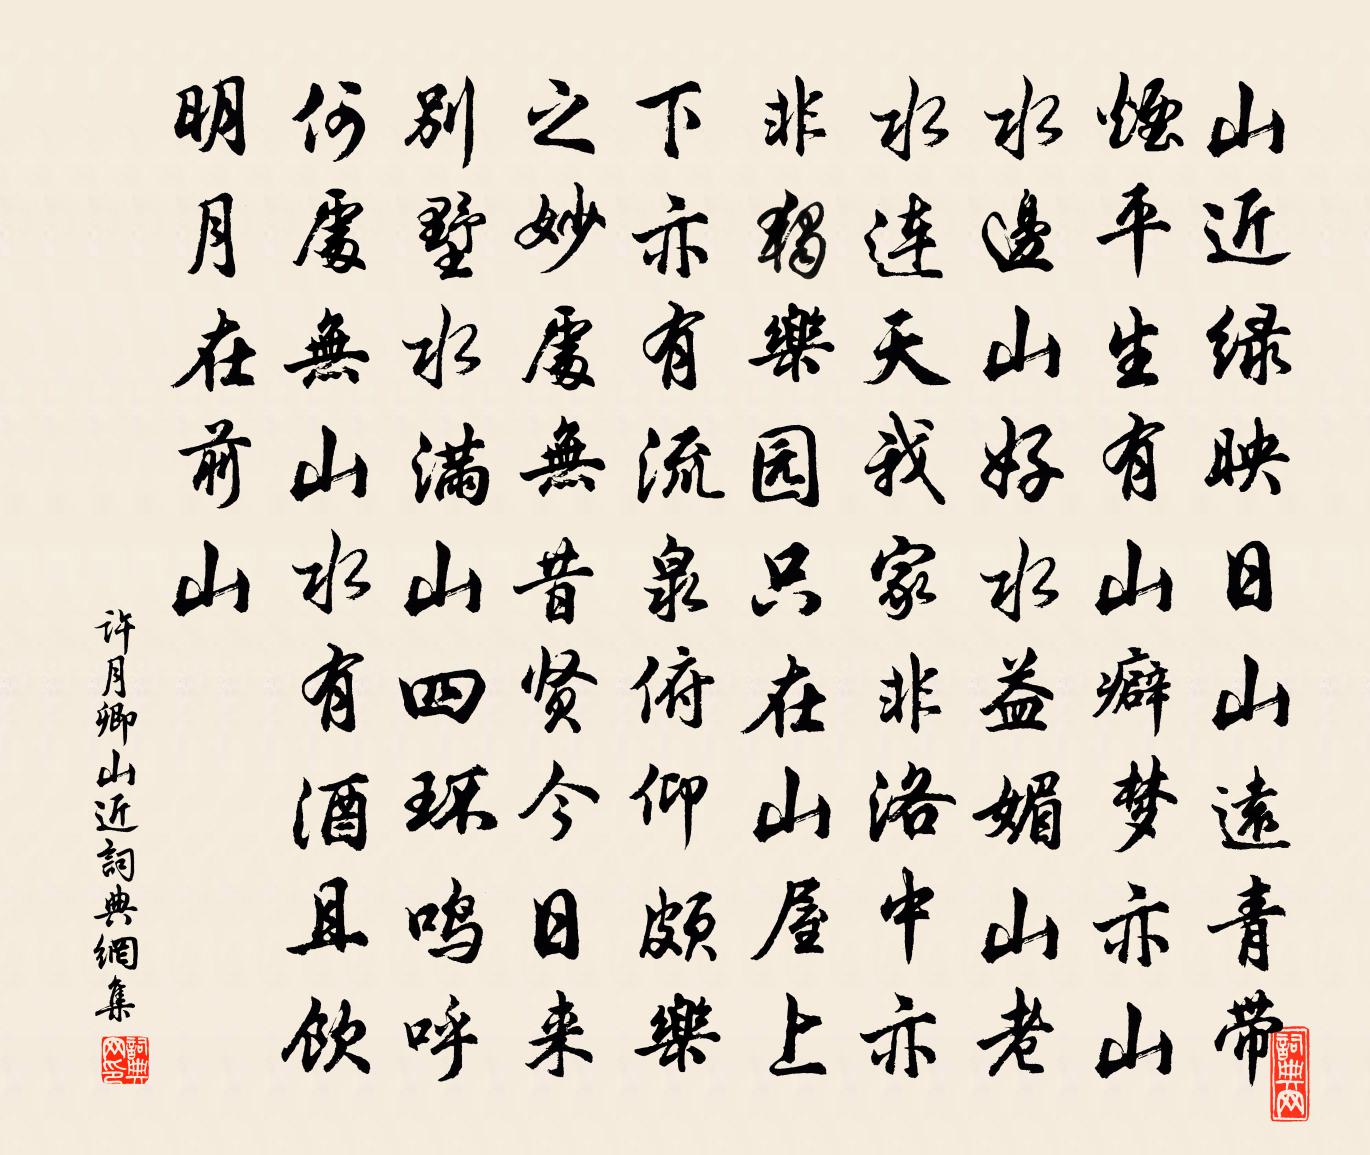 山近绿映日山遠青带
煙平生有山癖梦亦山
水邊山好水益媚山老
水連天我家非洛中亦
非獨樂园只在山屋上
下亦有流泉俯仰頗樂
之妙處無昔贤今日来
别墅水满山四环鸣呼
何處無山水有酒且饮
明月在前山
许月卿山近詞典網集
詞典网印
詞典网